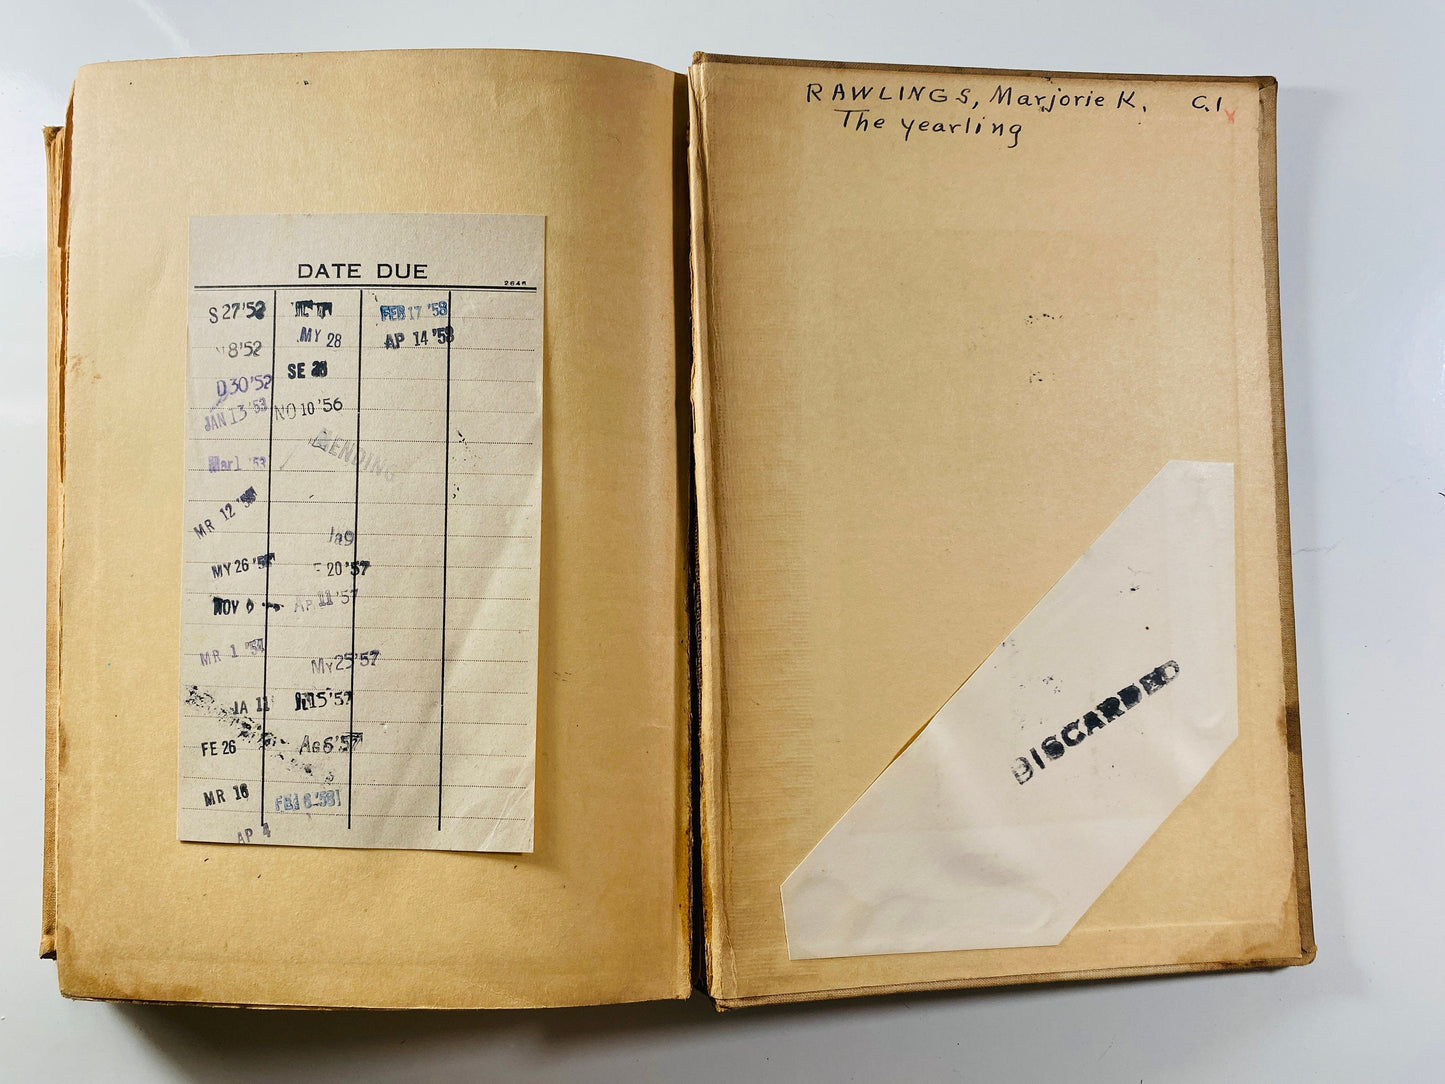 DATE DUE
2646
S 27 '52
8 '52
D 30 '52
JAN 13 '53
Mar 1 '53
MR 12
MY 26
NOV 6
MR 1 '54
JA 11
FE 26
MR 16
AP 4
MY 28
SE
NO 10 '56
MENDING
Ja 9
20 '57
AP 11 '57
MY 25 '57
15 '57
AG 6 '57
FE 6 '58
FEB 17 '58
AP 14 '58
RAWLINGS, Marjorie K. C.1
The yearling
DISCARDED